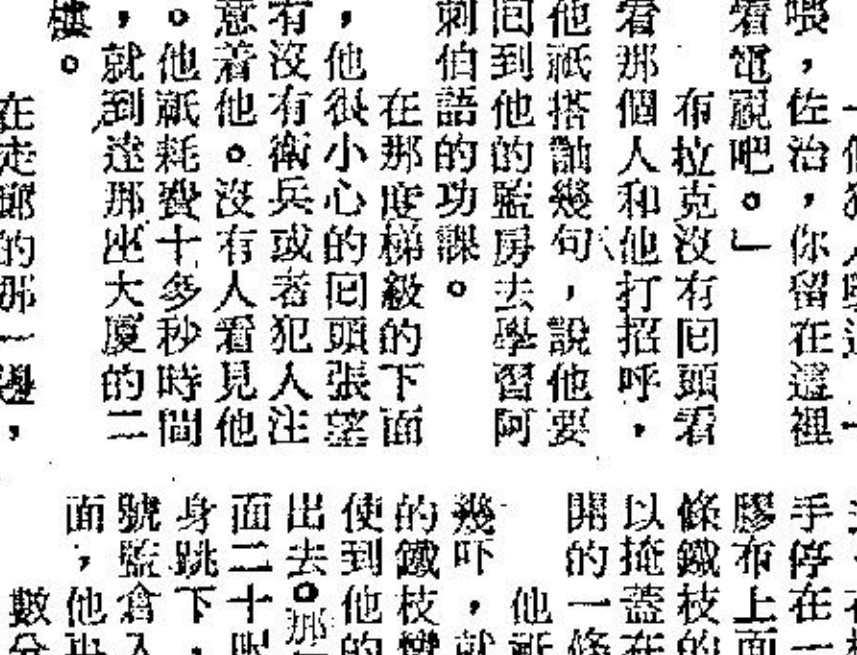 喂,佐治,你留在這裡
看電視吧。」
布拉克沒有回頭看
看那個人和他打招呼,
他祇搭訕幾句,說他要
回到他的監房去學習阿
刺伯語的功課。
在那度梯級的下面
,他很小心的回頭張望
有沒有衛兵或者犯人注
意着他。沒有人看見他
。他祇耗費十多秒時間
,就到達那座大廈的二
樓。
在走廊的那一邊,
手停在一
膠布上面
條鐵枝的
以掩蓋在
開的一條
他祇
幾吓,就
的鐵枝彎
使到他的
出去。那
面二十呎
身跳下,
號監倉入
面,他
數分